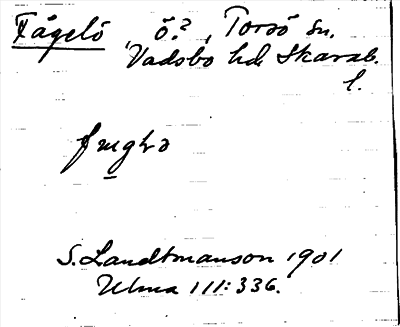 Fågelö, ö?, Torsö sn.
Vadsbo hd. Skarab.
l.
S. Landtmanson 1901
Ulma 111:336.